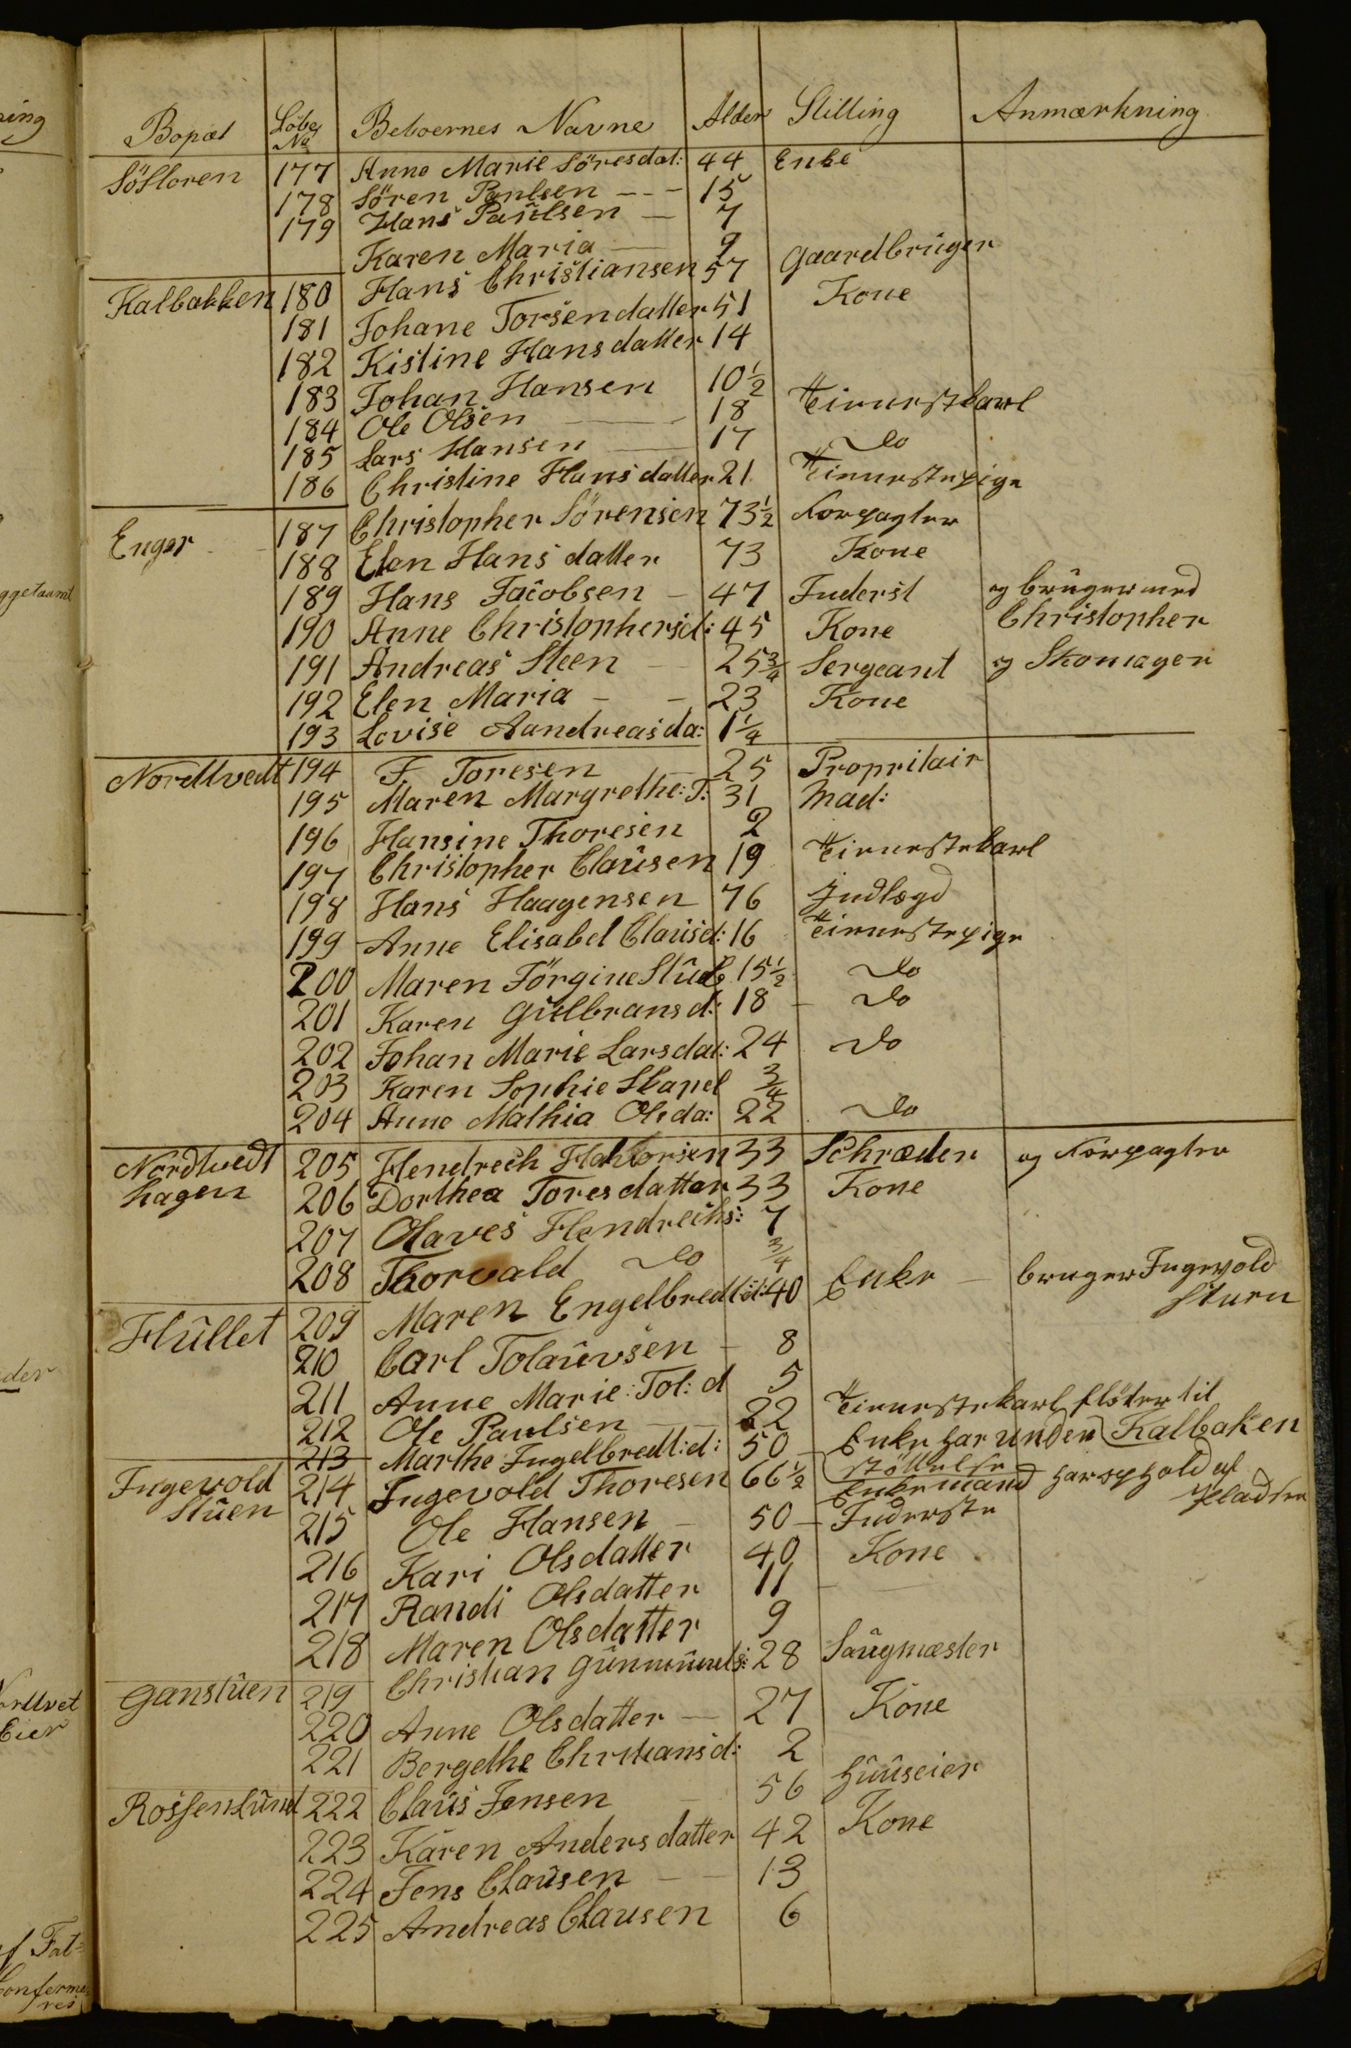 Bopæl Löbe No Beboernes Navne Alder Stilling Anmærkning
Söfloren 177 Anne Marie Söresdat: 44 Enke
178 Sören Paulsen - - - 15
179 Hans Paulsen - 7
Karen Maria - 9
Kalbakken 180 Hans Christiansen 57 Gaardbruger
181 Johane Torsendatter 51 Kone
182 Kistine Hansdatter 14
183 Johan Hansen 10½
184 Ole Olsen - 18 Tienestkarl
185 Lars Hansen - 17 Do
186 Christine Hansdatter 21 Tienestepige
Enger 187 Christopher Sörensen 73½ Forpagter
188 Elen Hansdatter 73 Kone
189 Hans Jacobsen - 47 Inderst og bruger med
190 Anne Christophersd: 45 Kone Christopher
191 Andreas Steen - 25¾ Sergeant og Skomager
192 Elen Maria - - 23 Kone
193 Lovise Aandreasda: 1¼
Nordtvedt 194 F. Toresen - 25 Propritair
195 Maren Margrethe: T: 31 Mad:
196 Hansine Thoresen 2
197 Christopher Clausen 19 Tienestekarl
198 Hans Haagensen 76 Indlægd
199 Anne Elisabel Clausd: 16 Tienestepige
200 Maren Jörgine 15½ Do
201 Karen Gulbransd: 18 - Do
202 Johan Marie Larsdat: 24 Do
203 Karen Sophie Stapel ¾
204 Anne Mathia Olsda: 22 Do
Nordtvedt 205 Hendrech Halvorsen 33 Schræder og Forpagter
hagen 206 Dorthea Toresdatter 33 Kone
207 Olaves Hendrechs: 7
208 Thorvald Do ¾
Hullet 209 Maren Engelbredtsd: 40 Enke - bruger Ingevold
Stuen
210 Carl Tolauvsen - 8
211 Anne Marie: Tol: d 5
212 Ole Paulsen - - 22 Tienestekarl fløter til
213 Marthe Ingelbredt: d: 50 - Enke har unden Kalbaken
støttelse
Ingevold 214 Ingevold Thoresen 66½ Enkemand har ophold af
Stuen Pladsen
215 Ole Hansen - 50 - Inderste
216 Kari Olsdatter 40 Kone
217 Randi Olsdatter 11 -
218 Maren Olsdatter 9
Ganstuen 219 Christian Gunnmunds: 28 Saugmæster
220 Anne Olsdatter - 27 Kone
221 Bergethe Christiansd: 2
Rossenlund 222 Claus Jensen - 56 Huuseier
223 Karen Andersdatter 42 Kone
224 Jens Clausen - - 13
225 Andreas Clausen 6